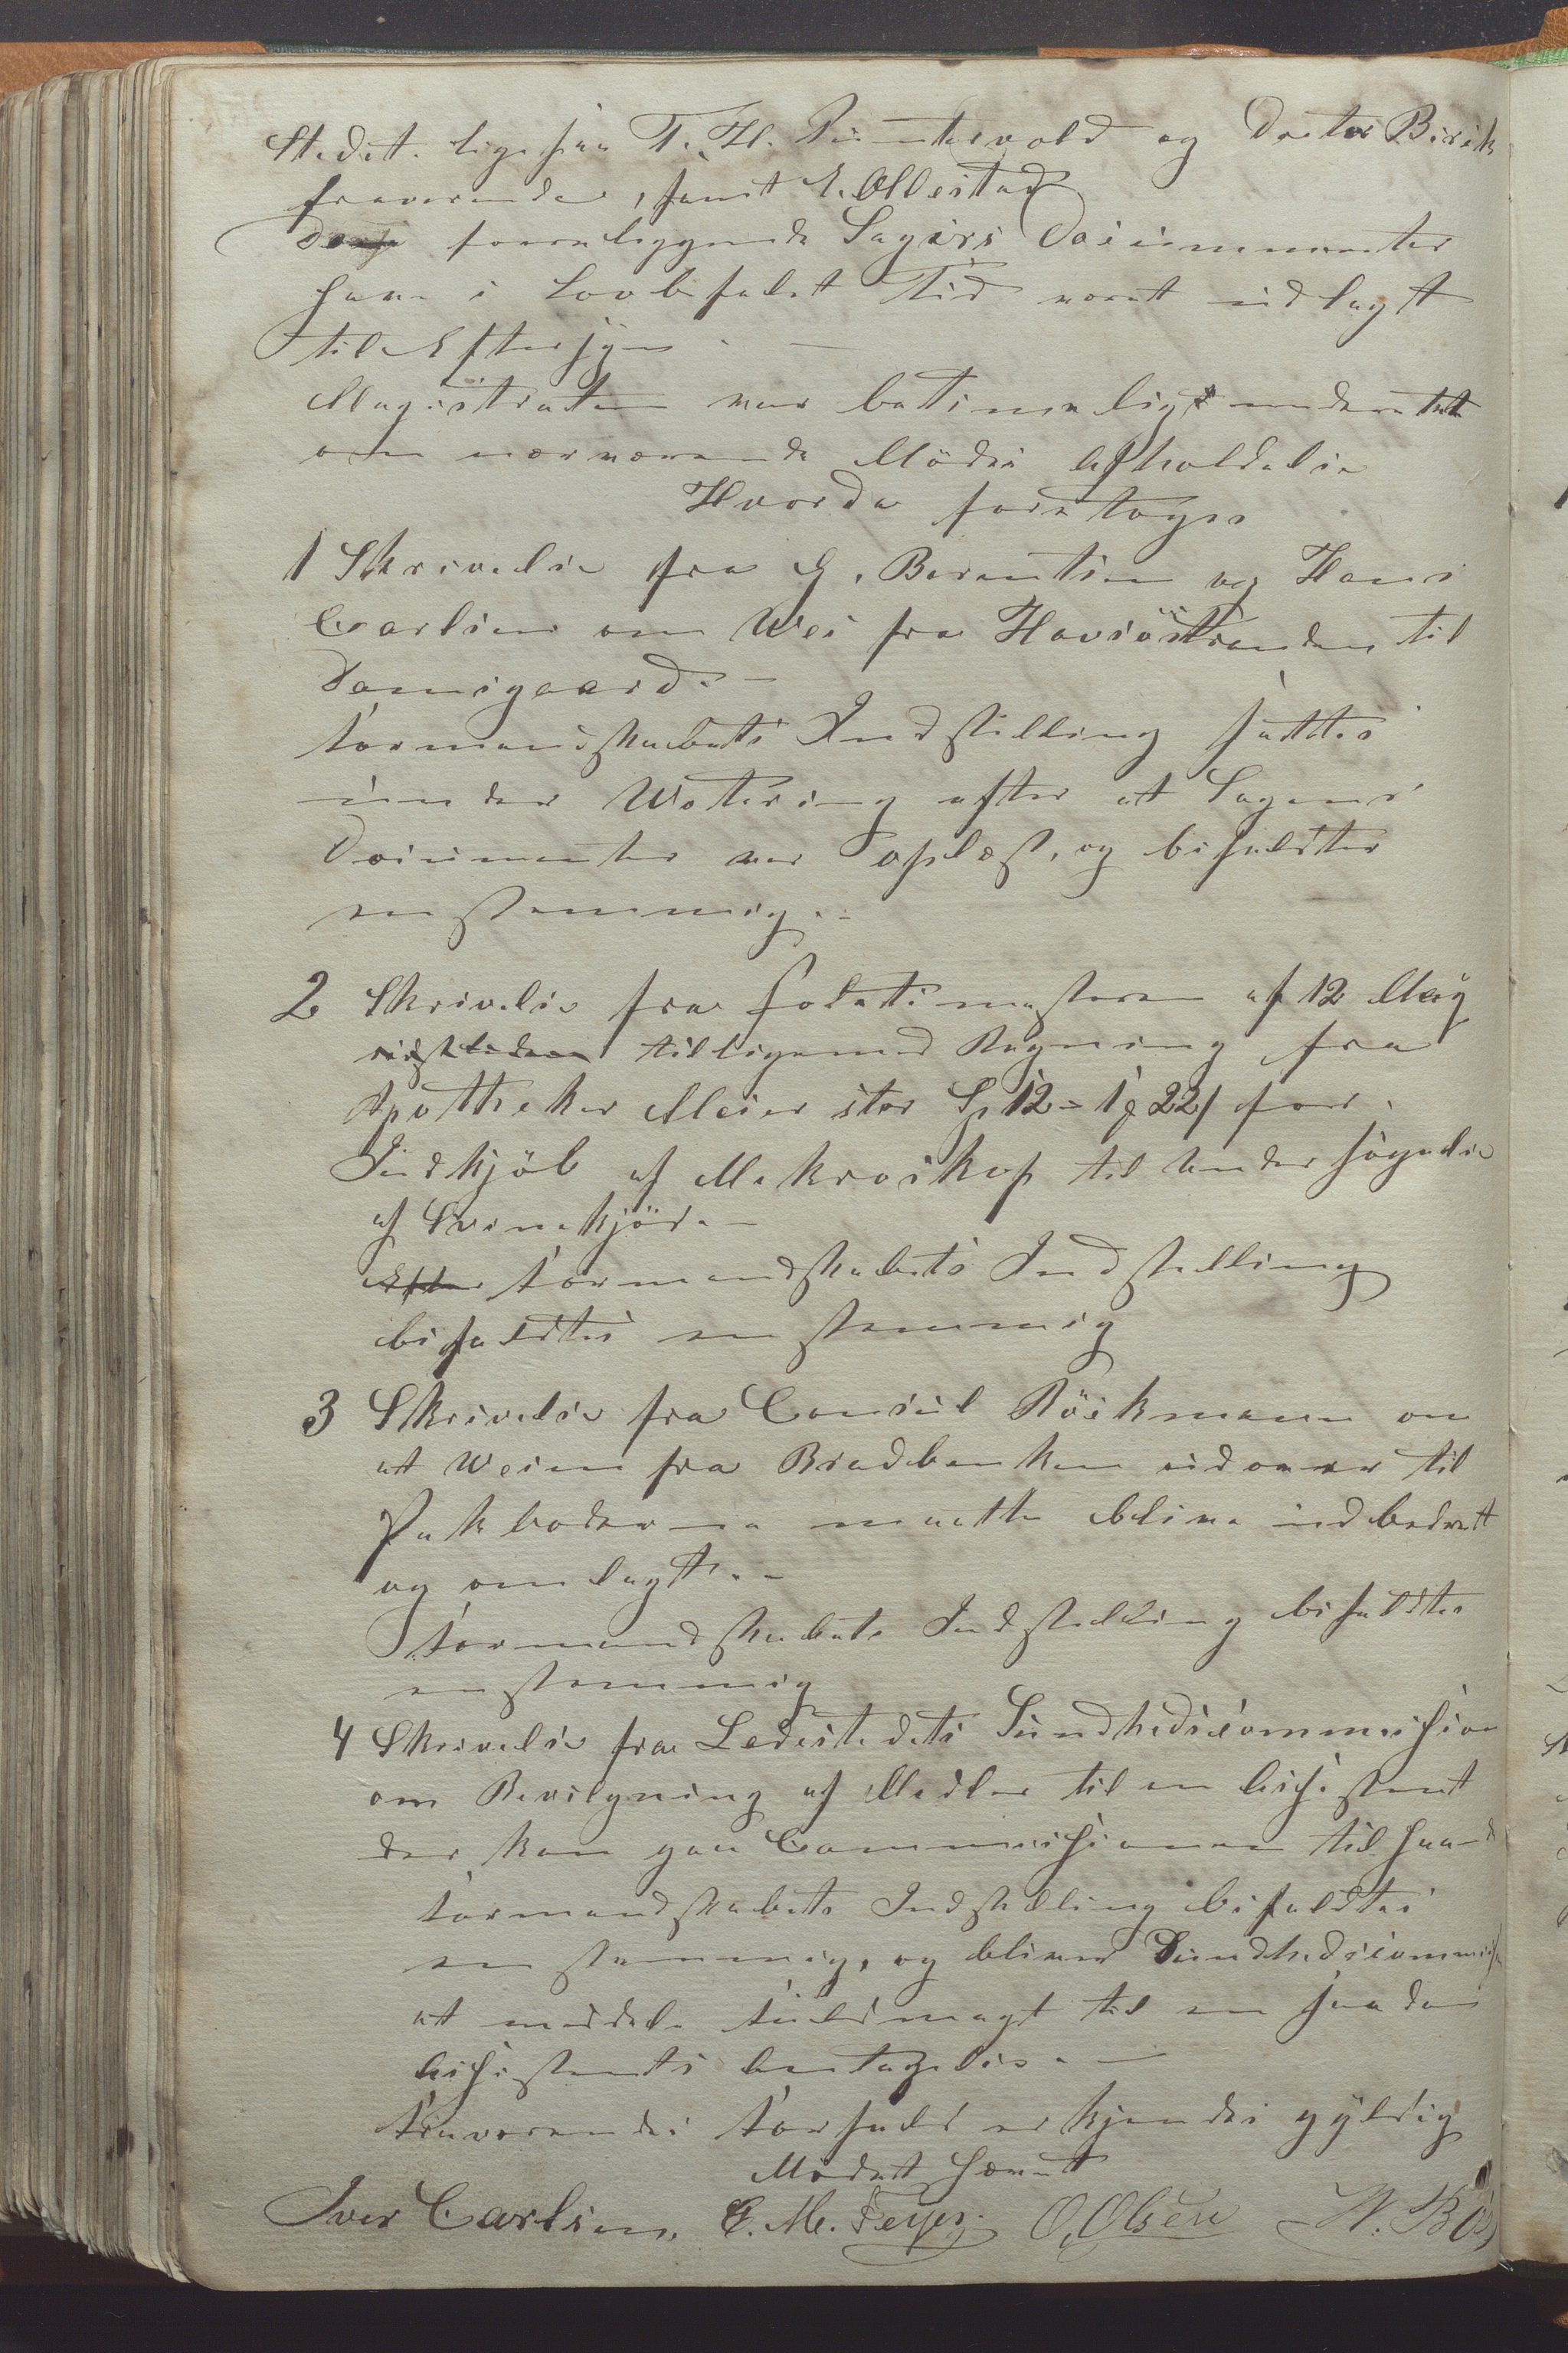 Stedet. ligesaa T. H. Puntervold og Doctor Birch
fraværende, samt E. Ollestad
foreliggende Sagers Documenter
have i lovbefalet Tid været udlagt
til Eftersyn. —
Magistraten var betimeligt underrettet
om nærværende Mödes Afholdelse
Hvorda foretoges
1 Skrivelse fra G. Berentsen og Hans
Carlsen om Wei fra Havsöstranden til
Damsgaard. —
Formandskabets Indstilling sattes
under Wotering efter at Sagens
Documenter var oplæst, og bifaldtes
enstemmig. -
2 Skrivelse fra Politimesteren af 12 May
sidstleden tilligemed Regning fra
Apotheker Meier stor Sp 12 - 1 22 s for
Indkjöb af Mekroskop til Undersögelse
af Svinekjöd. —
Efter Formandskabets Indstilling
bifaldtes enstemmig
3 Skrivelse fra Consul Röckmann om
at Weien fra Bradbenken udover til
Pakboderne maatte blive udbedret
og omlagt. -
Formandskabets Indstilling bifaldtes
enstemmig
4 Skrivelse fra Ladestedets Sundhedscommission
om Bevilgning af Medler til en Assistent
der kan gaa Commissionen til Haand
Formandskabets Indstilling bifaldtes
enstemmig, og bliver Sundhedscommiss
at meddele Fuldmagt til en saadan
Assistents Antagelse. —
Fraværendes Forfald erkjendes gyldig
Mödet hævet
Iver Carlsen. C. M. Feyer. O. Olsen N. Bö